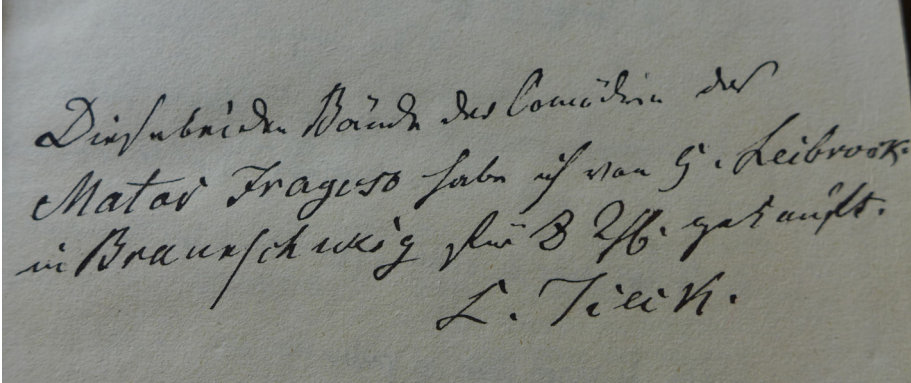 Diese beiden Bände der Comödien des
Matos Fragoso habe ich von H. Leibrock
in Braunschweig für 8 gekauft.
L. Tieck.